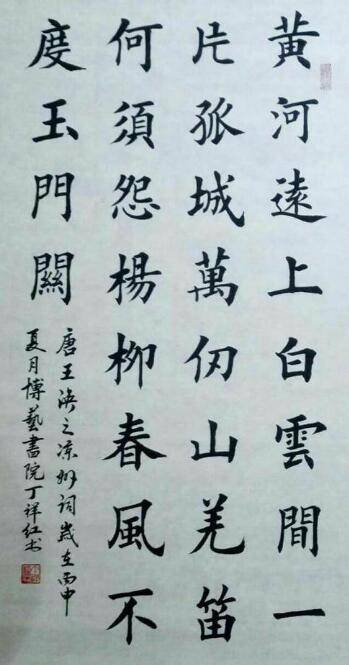 黄河遠上白雲間一
片孤城萬仞山羌笛
何須怨楊柳春風不
度玉門關
唐王渙之凉州词歲在丙申
夏月博藝書院丁祥红书